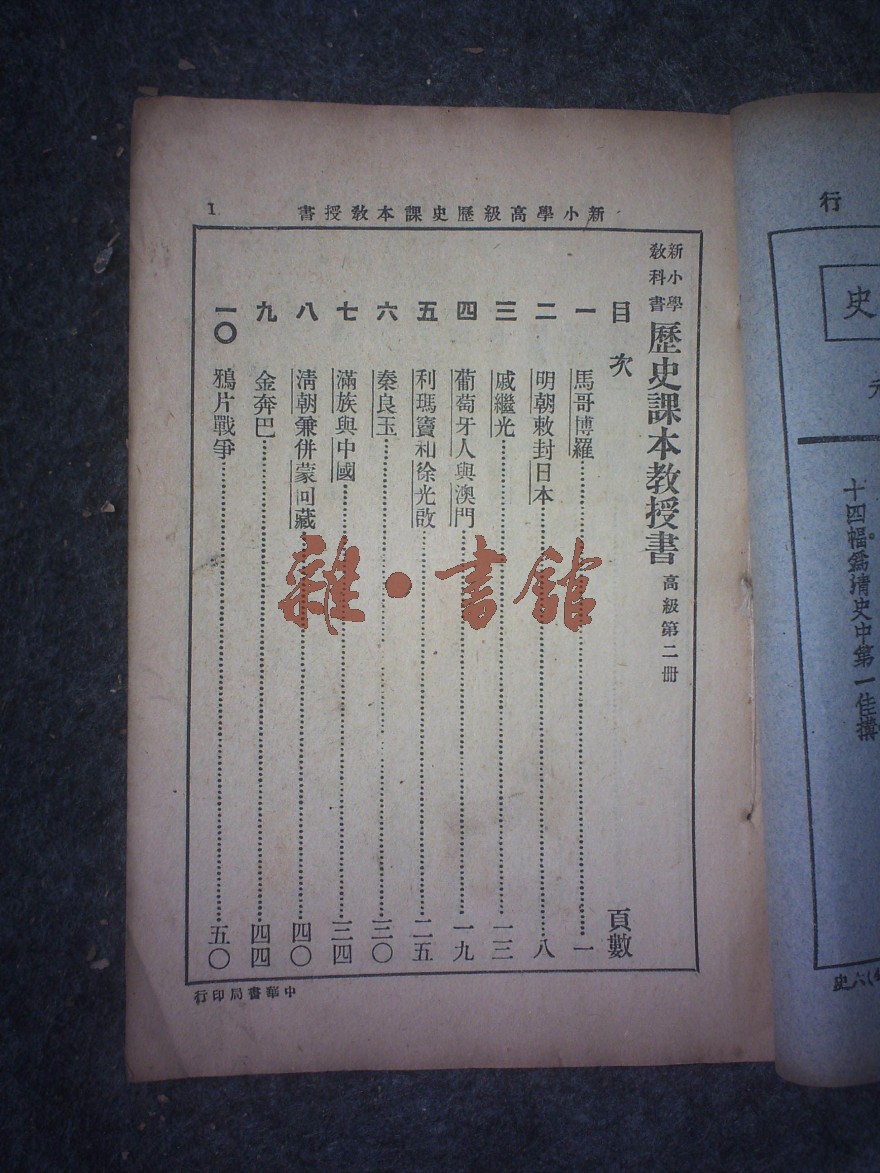 新小學高級歷史課本教授書
1
新小學
教科書
歷史課本教授書
高級第二冊
目次
頁數
一 馬哥博羅 一
二 明朝敕封日本 八
三 戚繼光 一三
四 葡萄牙人與澳門 一九
五 利瑪竇和徐光啟 二五
六 秦良玉 三〇
七 滿族與中國 三四
八 清朝兼併蒙回藏 四〇
九 金奔巴 四四
一〇 鴉片戰爭 五〇
中華書局印行
雜·書館
行
史
十四幅為清史中第一佳搆
六史